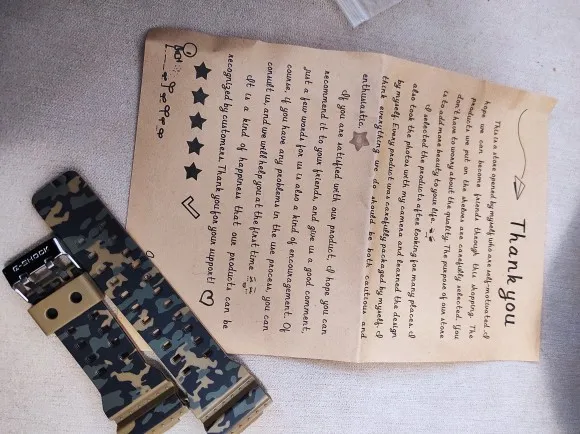 Thank you
This is a store opened by myself who are self-motivated. I
hope we can become friends through this shopping. The
products we put on the shelves are carefully selected. You
don't have to worry about the quality. The purpose of our store
is to add more beauty to your life.
I selected the products after looking for many places. I
also took the photos with my camera and learned the design
by myself. Every product was carefully packaged by myself. I
think everything we do should be both cautious and
enthusiastic.
If you are satisfied with our product, I hope you can
recommend it to your friends, and give us a good comment,
just a few words for us is also a kind of encouragement. Of
course, if you have any problems in the use process, you can
consult us, and we will help you at the first time
It is a kind of happiness that our products can be
recognized by customers. Thank you for your support!
G-SHOCK